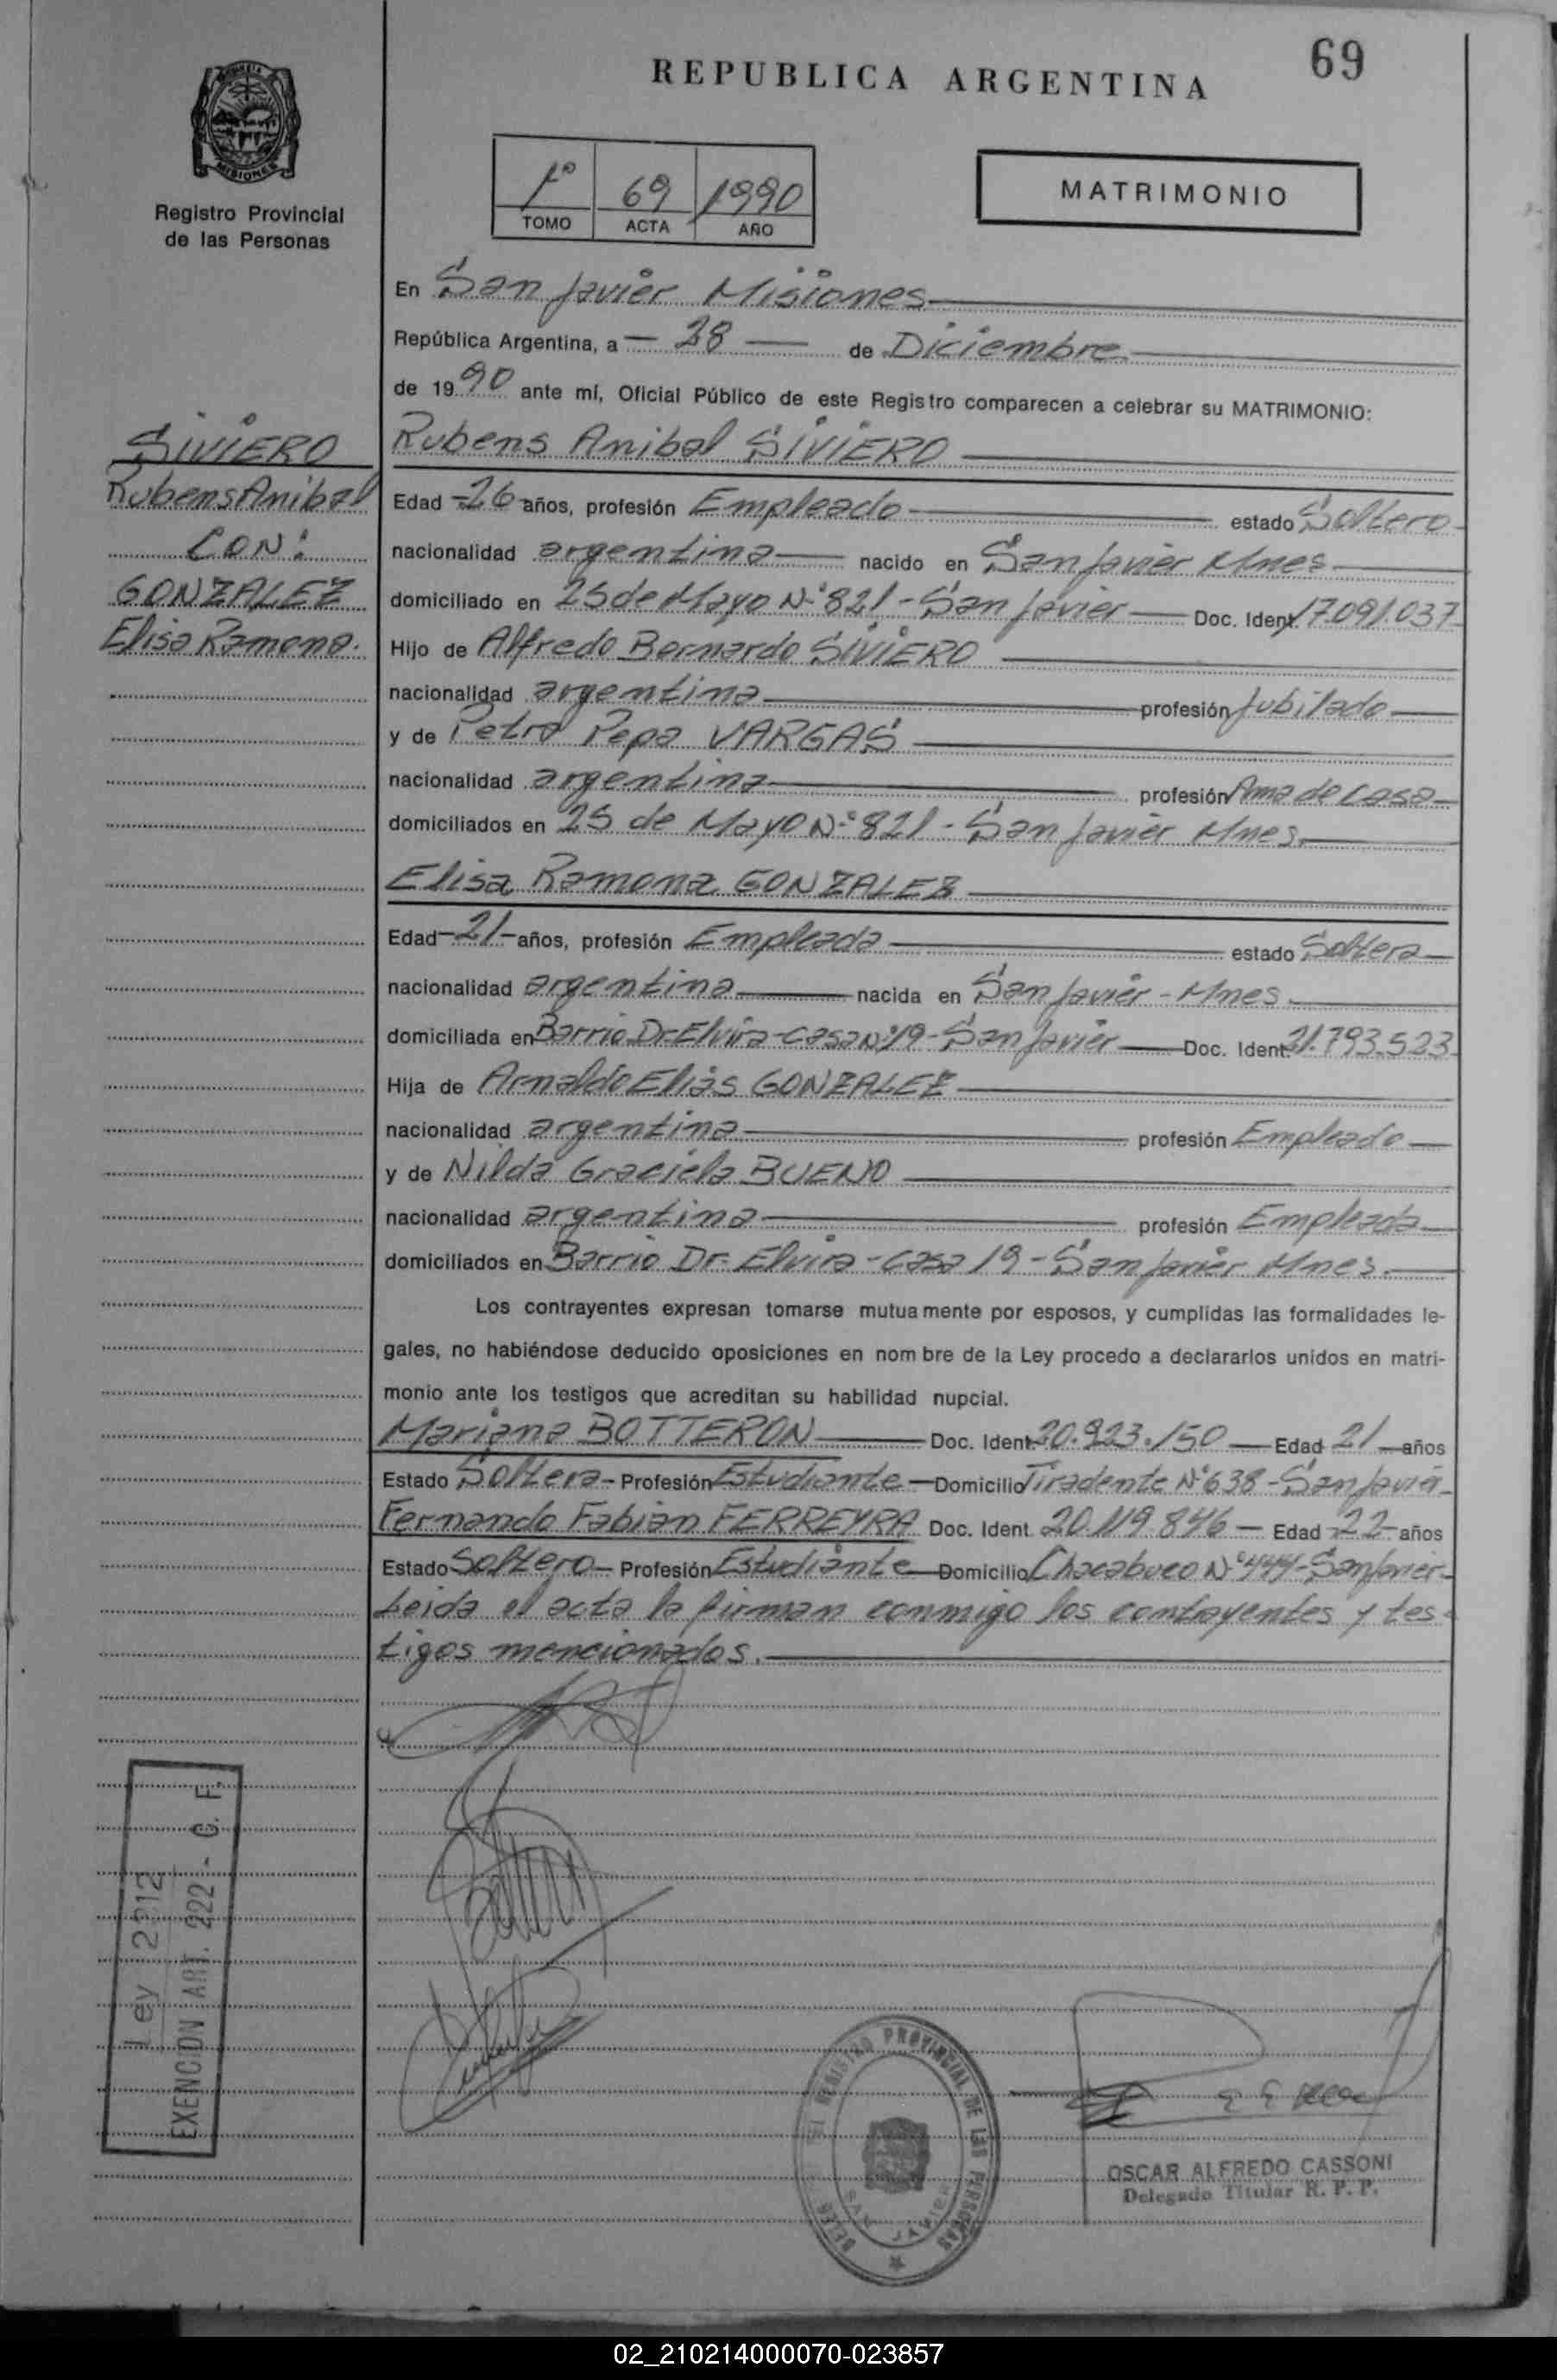 69
REPUBLICA ARGENTINA
MISIONES
Registro Provincial
de las Personas
1º 69 1990
TOMO ACTA AÑO
MATRIMONIO
En San Javier Misiones
República Argentina, a 28 de Diciembre
de 1990 ante mí, Oficial Público de este Registro comparecen a celebrar su MATRIMONIO:
SIVIERO
Rubens Anibal
CON:
GONZALEZ
Elisa Ramona.
Rubens Anibal SIVIERO
Edad 26 años, profesión Empleado estado Soltero
nacionalidad argentina nacido en San Javier Mnes
domiciliado en 25 de Mayo Nº 821 - San Javier Doc. Ident 17.091.037
Hijo de Alfredo Bernardo SIVIERO
nacionalidad argentina profesión Jubilado
y de Petrona Pepa VARGAS
nacionalidad argentina profesión Ama de casa
domiciliados en 25 de Mayo Nº 821 - San Javier Mnes.
Elisa Ramona GONZALEZ
Edad 21 años, profesión Empleada estado Soltera
nacionalidad argentina nacida en San Javier - Mnes.
domiciliada en Barrio Dr. Elvira - casa Nº 19 - San Javier Doc. Ident. 21.793.523
Hija de Arnaldo Elias GONZALEZ
nacionalidad argentina profesión Empleado
y de Nilda Graciela BUENO
nacionalidad argentina profesión Empleada
domiciliados en Barrio Dr. Elvira - casa 19 - San Javier Mnes.
Los contrayentes expresan tomarse mutuamente por esposos, y cumplidas las formalidades le-
gales, no habiéndose deducido oposiciones en nombre de la Ley procedo a declararlos unidos en matri-
monio ante los testigos que acreditan su habilidad nupcial.
Mariana BOTTERON Doc. Ident. 20.923.150 Edad 21 años
Estado Soltera - Profesión Estudiante Domicilio Tiradente Nº 638 - San Javier
Fernando Fabian FERREYRA Doc. Ident. 20.119.846 Edad 22 años
Estado Soltero - Profesión Estudiante Domicilio Chacabuco Nº 444 - San Javier
Leida el acta la firman conmigo los contrayentes y tes-
tigos mencionados.
Ley 2212
EXENCION ART. 222 - G. F.
REGISTRO PROVINCIAL DE LAS PERSONAS
SAN JAVIER
OSCAR ALFREDO CASSONI
Delegado Titular R. P. P.
02_210214000070-023857